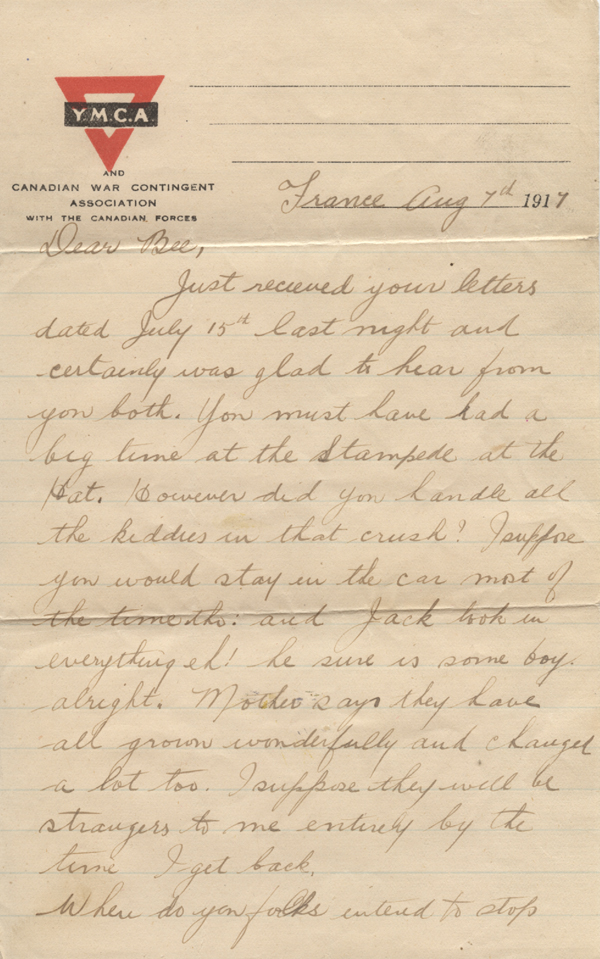 Y.M.C.A.
AND
CANADIAN WAR CONTINGENT
ASSOCIATION
WITH THE CANADIAN FORCES
France Aug 7th 1917
Dear Bee,
Just recieved your letters
dated July 15th last night and
certainly was glad to hear from
you both. You must have had a
big time at the Stampede at the
Hat. However did you handle all
the kiddies in that crush? I suppose
you would stay in the car most of
the time tho: and Jack took in
everything eh! he sure is some boy.
alright. Mother says they have
all grown wonderfully and changed
a lot too. I suppose they will be
strangers to me entirely by the
time I get back.
Where do you folks intend to stop